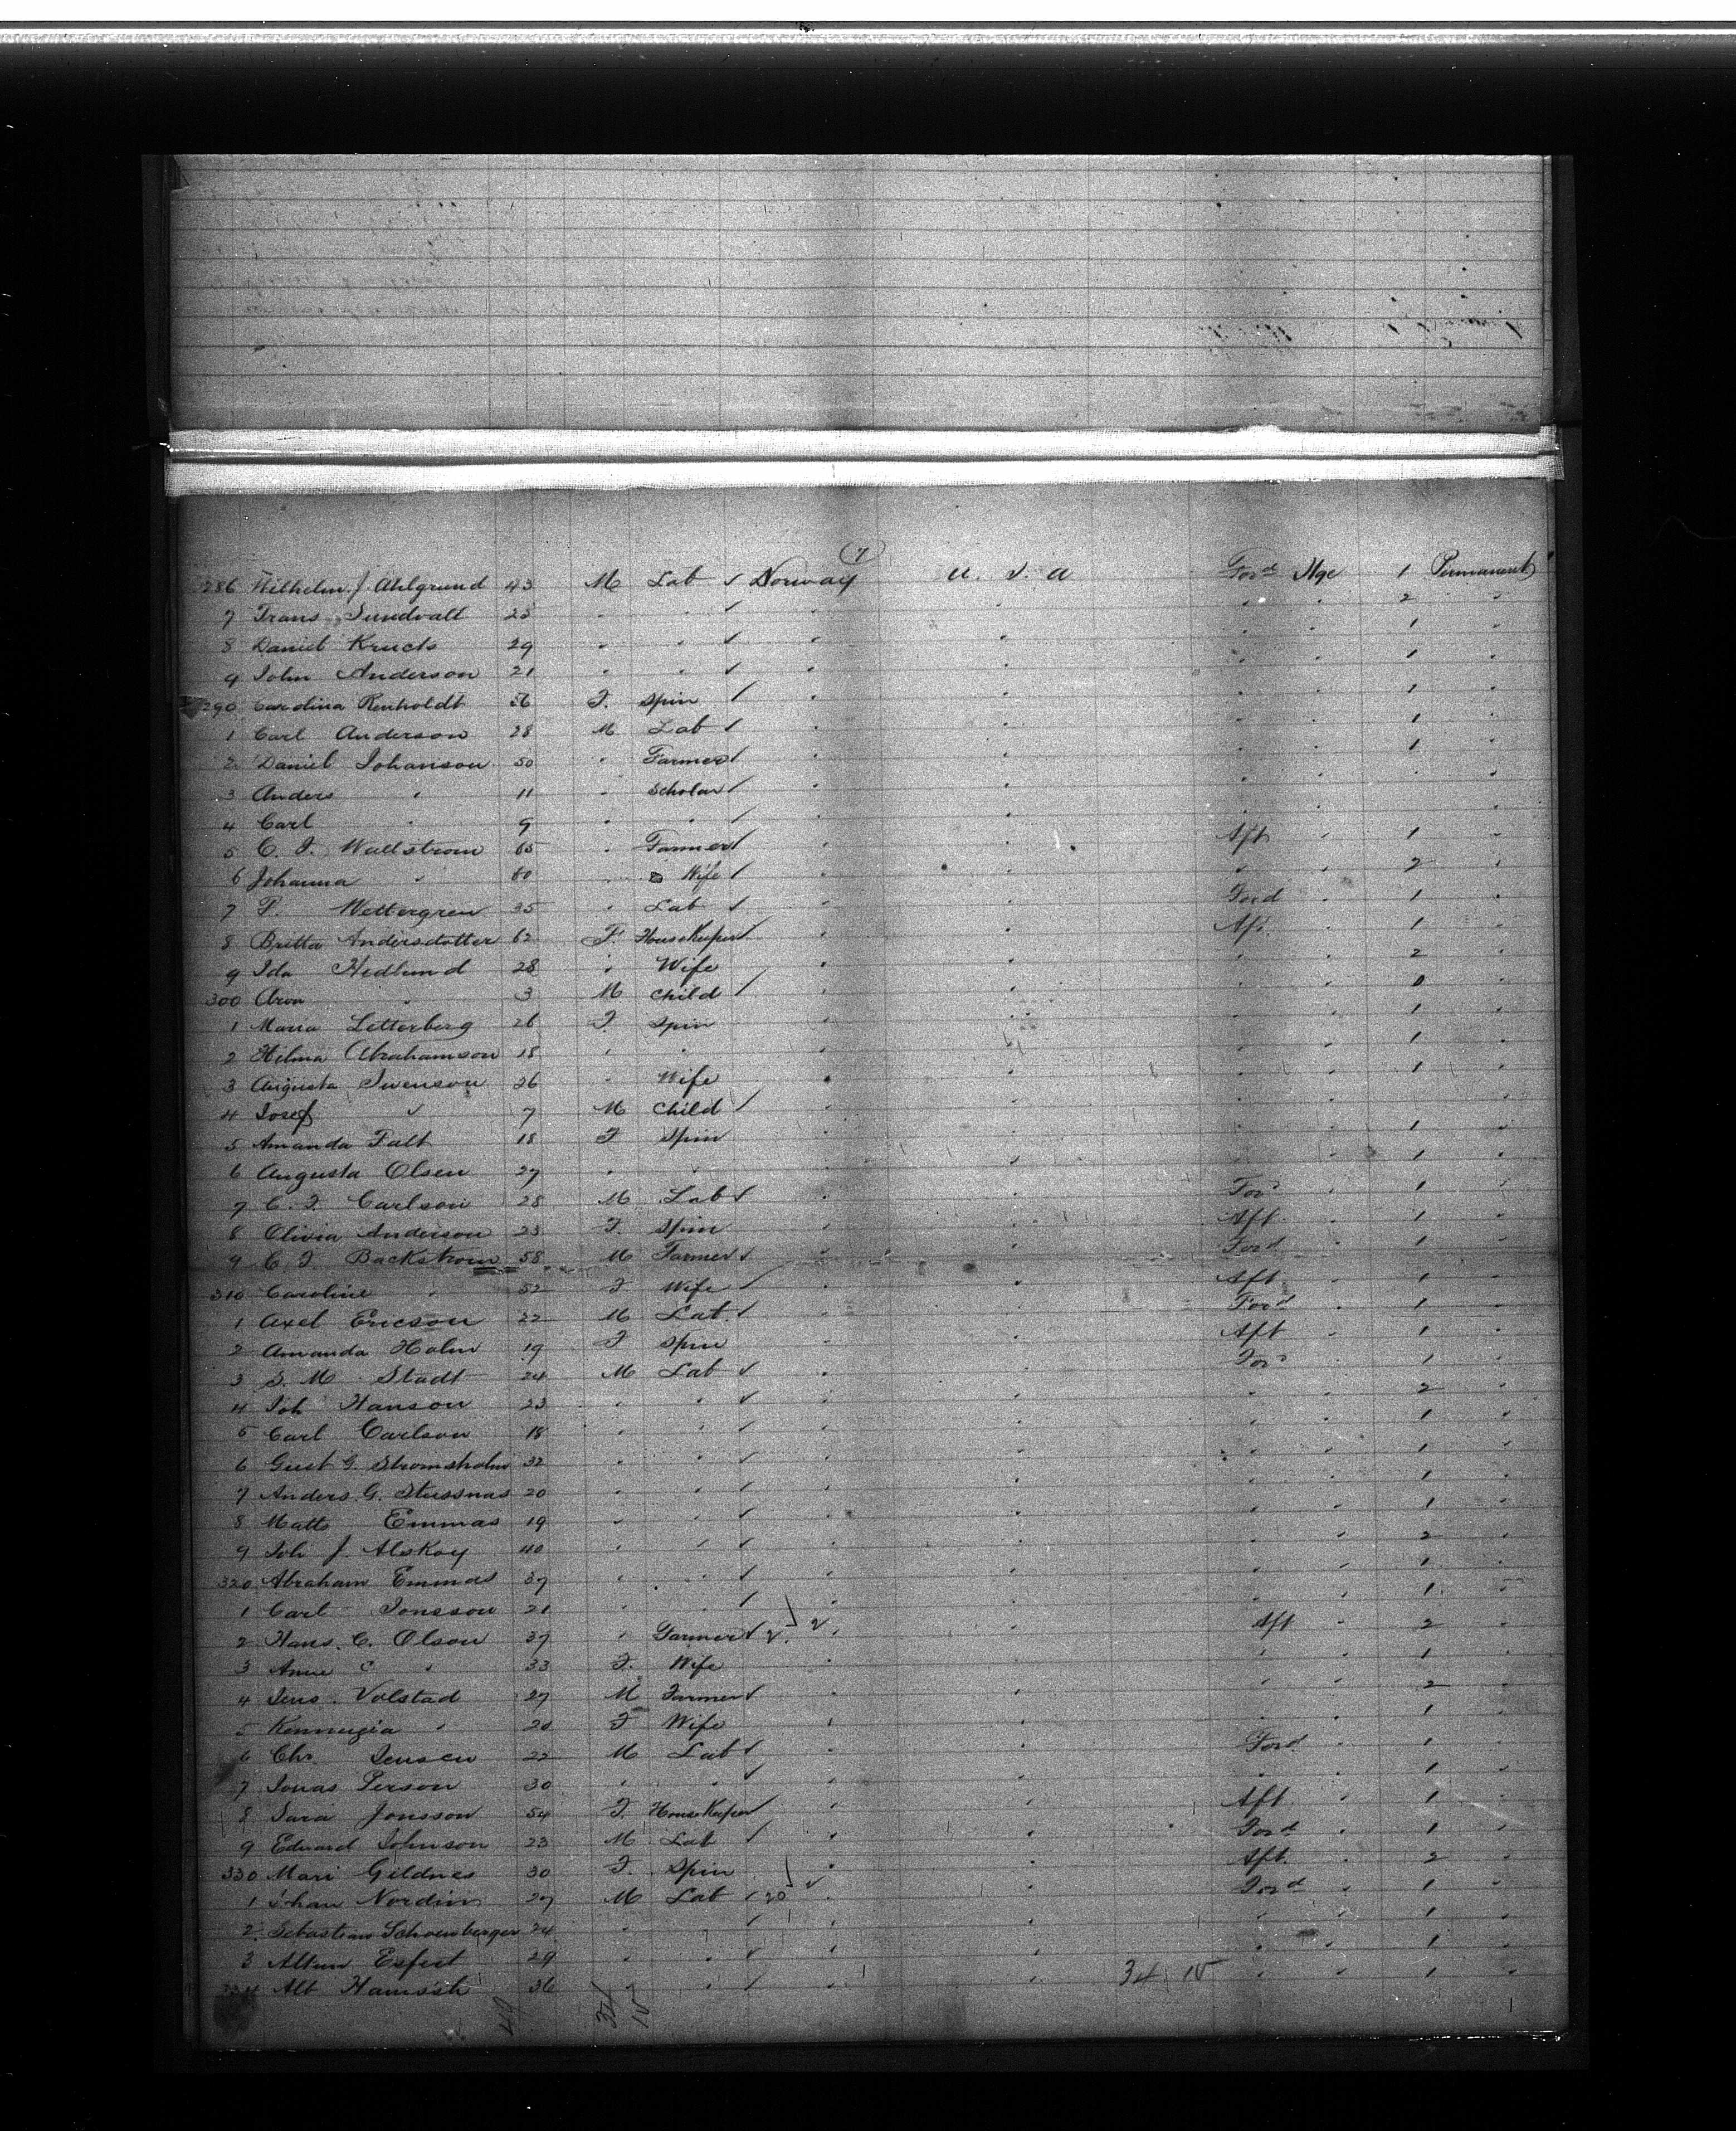 7
286 Wilhelm J. Ahlgrund 43 M Lab ✓ Norway U. S. A Ford Stge 1 Permanent
7 Frans Sundvall 25 " " ✓ " " " " 2 "
8 Daniel Kruck 29 " " ✓ " " " " 1 "
9 John Anderson 21 " " ✓ " " " " 1 "
290 Carolina Renholdt 56 F. Spin ✓ " " " " 1 "
1 Carl Anderson 28 M Lab ✓ " " " " 1 "
2 Daniel Johanson 50 " Farmer ✓ " " " " 1 "
3 Anders " 11 " Scholar ✓ " " " " "
4 Carl " 9 " " ✓ " " " " "
5 C. J. Wallstrom 65 " Farmer ✓ " " Aft " 1 "
6 Johanna " 60 " Wife ✓ " " " " 2 "
7 P. Wettergren 35 " Lab ✓ " " Ford " 1 "
8 Britta Andersdotter 62 F. HouseKeeper ✓ " " Aft. " 1 "
9 Ida Hedlund 28 " Wife " " " " 2 "
300 Aron " 3 M Child ✓ " " " " 0 "
1 Maria Letterberg 26 F. Spin " " " " 1 "
2 Hilma Abrahamson 18 " " " " " " 1 "
3 Augusta Swenson 26 " Wife " " " " 1 "
4 Josef " 7 M Child ✓ " " " " "
5 Amanda Falt 18 F Spin " " " " 1 "
6 Augusta Olsen 27 " " " " " " 1 "
7 C. F. Carlson 28 M Lab ✓ " " For " 1 "
8 Olivia Anderson 23 F. Spin " " Aft " 1 "
9 C. J Backstrom 58 M Farmer ✓ " " Ford " 1 "
310 Caroline " 52 F Wife ✓ " " Aft " 1 "
1 Axel Ericson 22 M Lab. ✓ " " Ford " 1 "
2 Amanda Holm 19 F Spin " " Aft " 1 "
3 S. M Stadt 24 M Lab ✓ " " For " 1 "
4 Joh Hanson 23 " " ✓ " " " " 2 "
5 Carl Carlson 18 " " ✓ " " " " 1 "
6 Gust G. Stromsholm 32 " " ✓ " " " " 1 "
7 Anders. G. 20 " " ✓ " " " " 1 "
8 Matts Emmas 19 " " ✓ " " " " 1 "
9 Joh J. Alskog 40 " " ✓ " " " " 2 "
320 Abraham Emmas 37 " " ✓ " " " " 1 "
1 Carl Jonsson 21 " " ✓ " " " " 1 "
2 Hans. C. Olson 37 " Farmer ✓ 2. 2 " " Aft " 2 "
3 Anne C " 33 F. Wife " " " " 1 "
4 Jens. Volstad 27 M Farmer ✓ " " " " 2 "
5 " 20 F Wife " " " " 1 "
6 Chr Jensen 22 M Lab ✓ " " Ford " 1 "
7 Jonas Person 30 " " ✓ " " " " 1 "
8 Sara Jonsson 54 F. HouseKeeper ✓ " " Aft " 1 "
9 Edward Johnson 23 M Lab ✓ " " Ford " 1 "
330 Mari Gildnes 30 F. Spin " " Aft. " 2 "
1 Johan Nordin 27 M Lab ✓ 20 ✓ " " Ford " 1 "
2. Sebastian Schoenberger 24 " " ✓ " " " " 1 "
3 29 " " ✓ " " " " 1 "
334 Alb 36 " " ✓ " " 34 15 " " 1 "
49 34 15